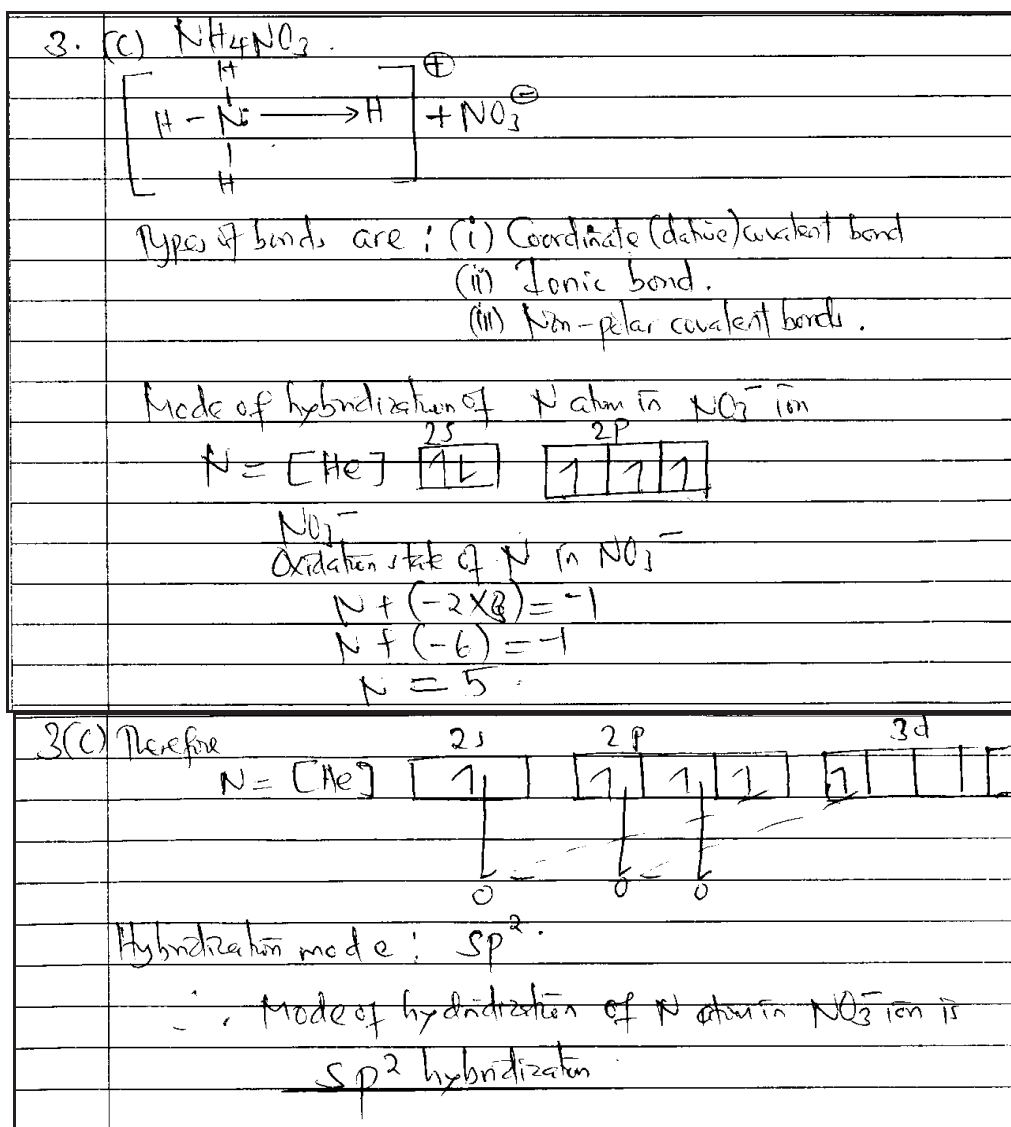 3. (C) NH4NO3.
H
H - N: ⟶ H ⊕ + NO3⊖
H
Types of bonds are : (i) Coordinate (dative) covalent bond
(ii) Ionic bond.
(iii) Non-polar covalent bonds.
Mode of hybridization of N atom in NO3⁻ ion
2s 2p
N = [He] 1L 1 1 1
NO3⁻
Oxidation state of N in NO3⁻
N + (-2×3) = -1
N + (-6) = -1
N = 5.
3(C) Therefore 2s 2p 3d
N = [He] 1 1 1 1 1
O O O
Hybridization mode : Sp².
∴ Mode of hydridization of N atom in NO3⁻ ion is
Sp² hybridization